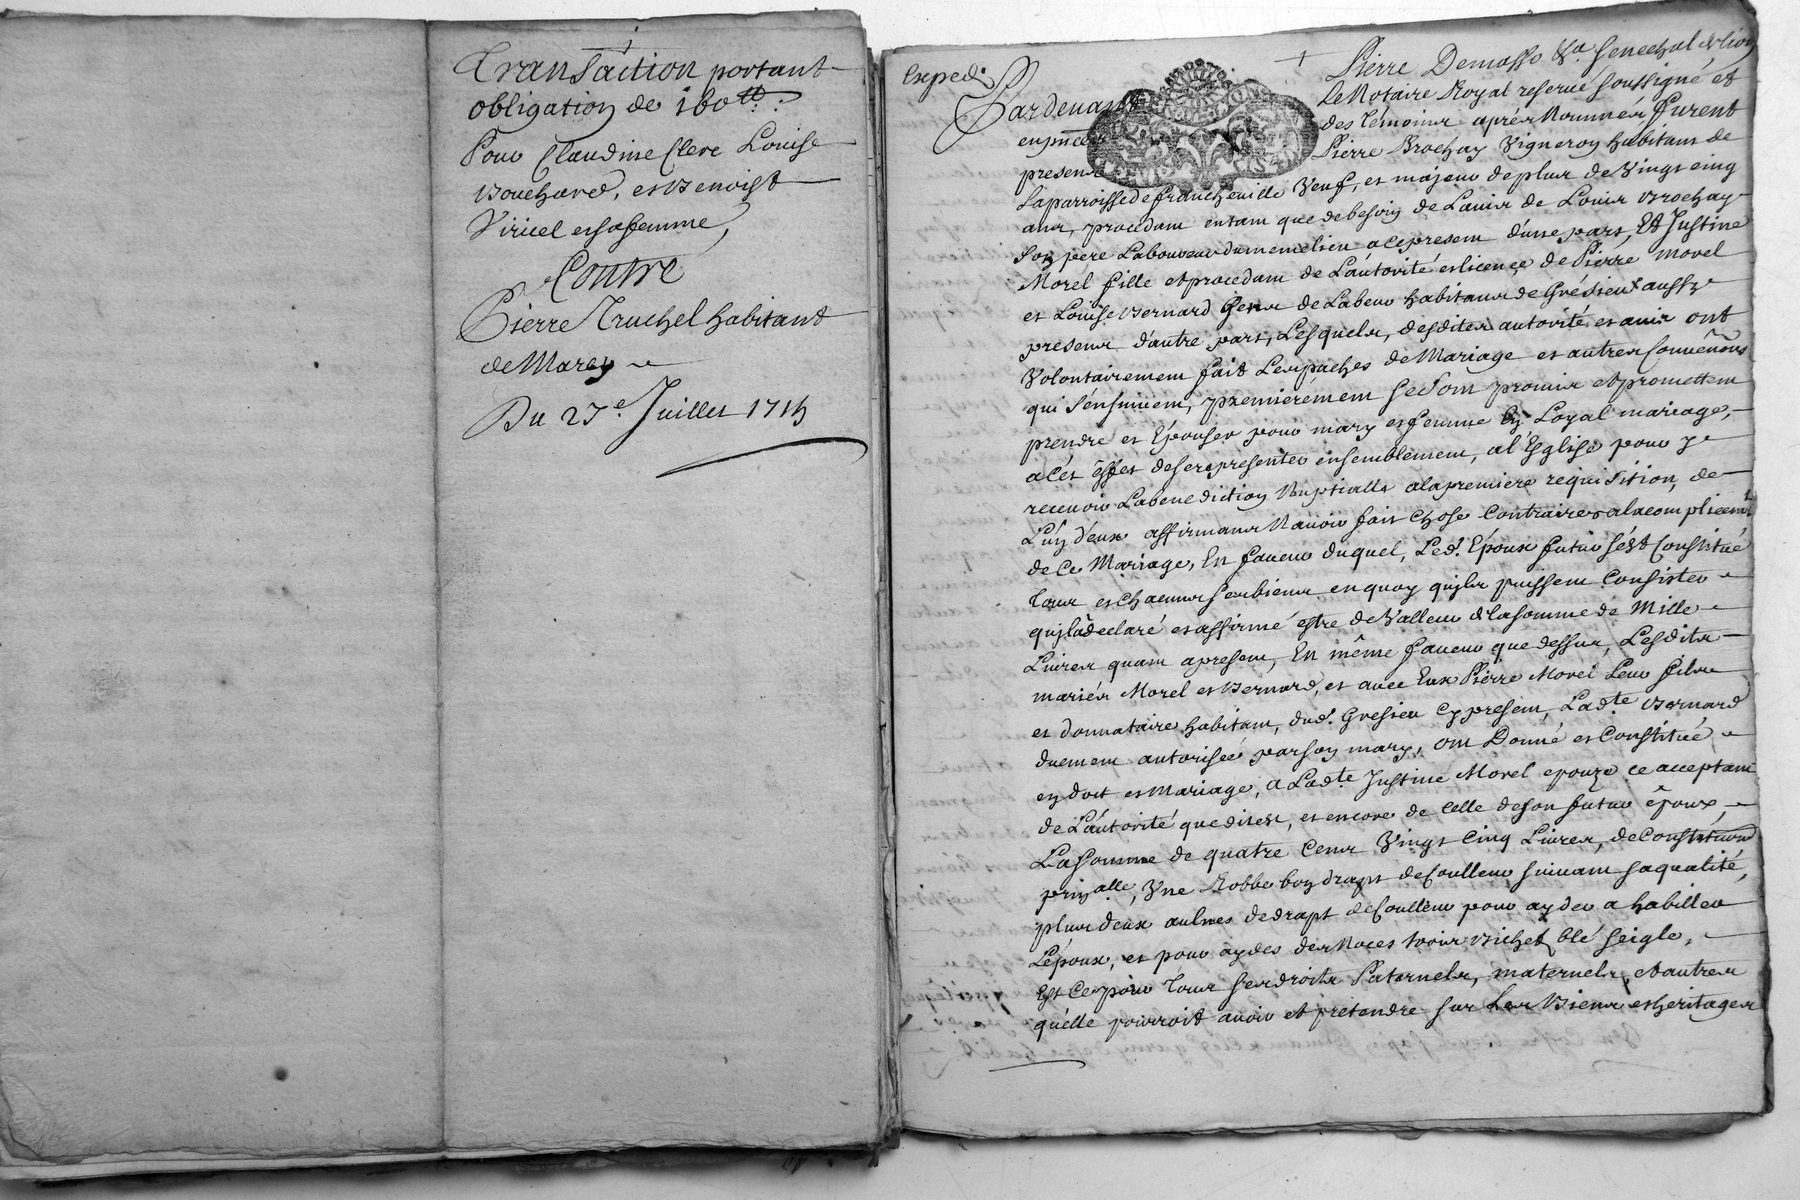 Transaction portant
obligation de 160tt
Pour Claudine Clerc Louise
Bouchard, et Benoist
Viricel et sa femme,
Contre
Pierre Truchel habitant
de Marcy
Du 27e Juillet 1715
Exped.
Pardevant Pierre Demasso
Le Notaire Royal reservé soussigné et
en pnce des témoins aprés Nommés Furent
presens Pierre Brochay Vigneron habitant de
La parroisse de francheville Veuf, et majeur de plus de Vingt cinq
ans, procedant en tant que de besoin de L'avis de Louis Brochay
son pere Laboureur du meme lieu a ce present d'une part, Et Justine
Morel fille et procedant de L'autorité et licence de Pierre Morel
et Louise Bernard Gens de Labeur habitans de Gresieu aussy
presens d'autre part, Lesquels, desdites autorité et avis ont
Volontairement fait Les paches de Mariage et autres Conuenôns
qui s'ensuiuent, premiérement se sont promis et promettent
prendre et Épouser pour mary et femme En Loyal mariage,
a cét éffet de se representer ensemblement, a l'Eglise pour y
receuoir La benediction Nuptialle a la premiere requisition, de
L'un d'eux affirmans N'auoir fait chose Contraire a lacomplicemt
de Ce Mariage, En faueur duquel, Led. Époux futur s'ést Constitué
Tous et chacuns ses biens en quoy qu'jls puissent Consister
qu'jl a déclaré et affirmé estre de Valleur de la somme de Mille
Liures quant a present, En même faueur que dessus, Lesdits
mariés Morel et Bernard, et avec Eux Pierre Morel Leur fils
et donnataire habitant, dud. Gresieu cy present, Lad.te Bernard
duement autorisée par son mary, ont Donné et Constitué
en dot et mariage, a Lad.te Justine Morel epouze ce acceptant
de L'autorité que dit est, et encore de celle de son futur époux,
La somme de quatre Cent Vingt Cinq Liures, de Constitution
prinalle, Vne Robbe bon drapt de Coulleur suiuant sa qualité,
plus deux aulnes de drapt de Coulleur pour ayder a habiller
L'époux, et pour aydes des Noces trois Bichets blé seigle,
Est Ce pour Tous ses droits Paternels, maternels, et autres
qu'elle pourroit auoir et pretendre sur Les Biens et heritages